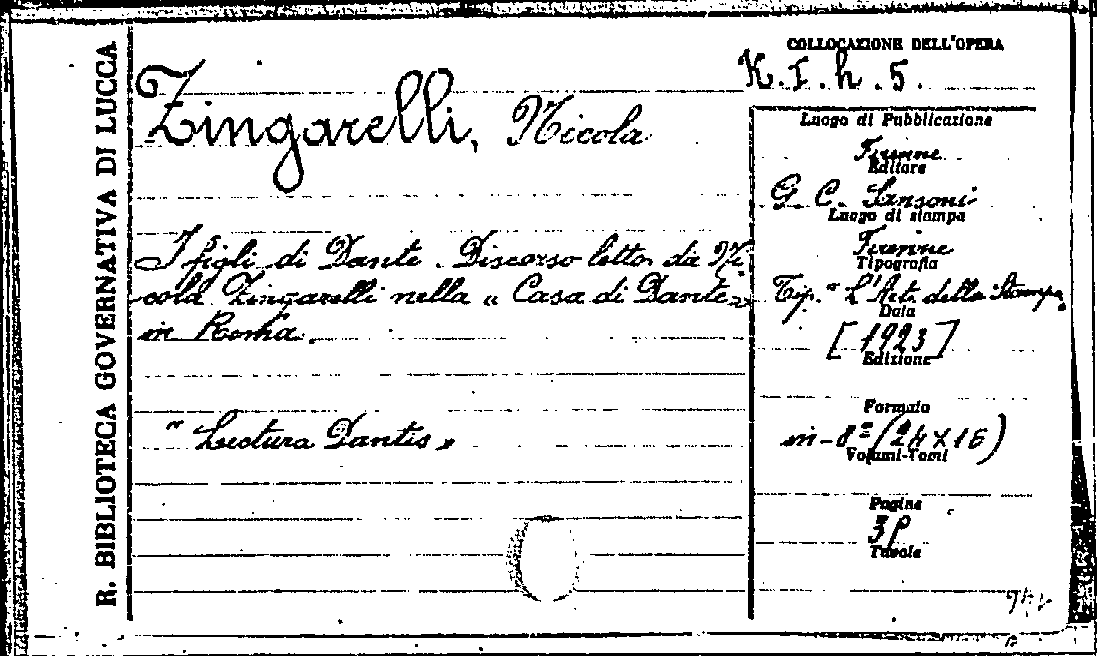 R. BIBLIOTECA GOVERNATIVA DI LUCCA
COLLOCAZIONE DELL'OPERA
K. I. h. 5.
Zingarelli, Nicola
I figli di Dante. Discorso letto da Ni
cola Zingarelli nella « Casa di Dante »
in Roma.
" Lectura Dantis »
Luogo di Pubblicazione
Firenze
Editore
G. C. Sansoni
Luogo di stampa
Firenze
Tipografia
Tip. " L'Arte della Stampa
Data
[1923]
Edizione
Formato
in-8º (24x16)
Volumi-Tomi
Pagine
Tavole